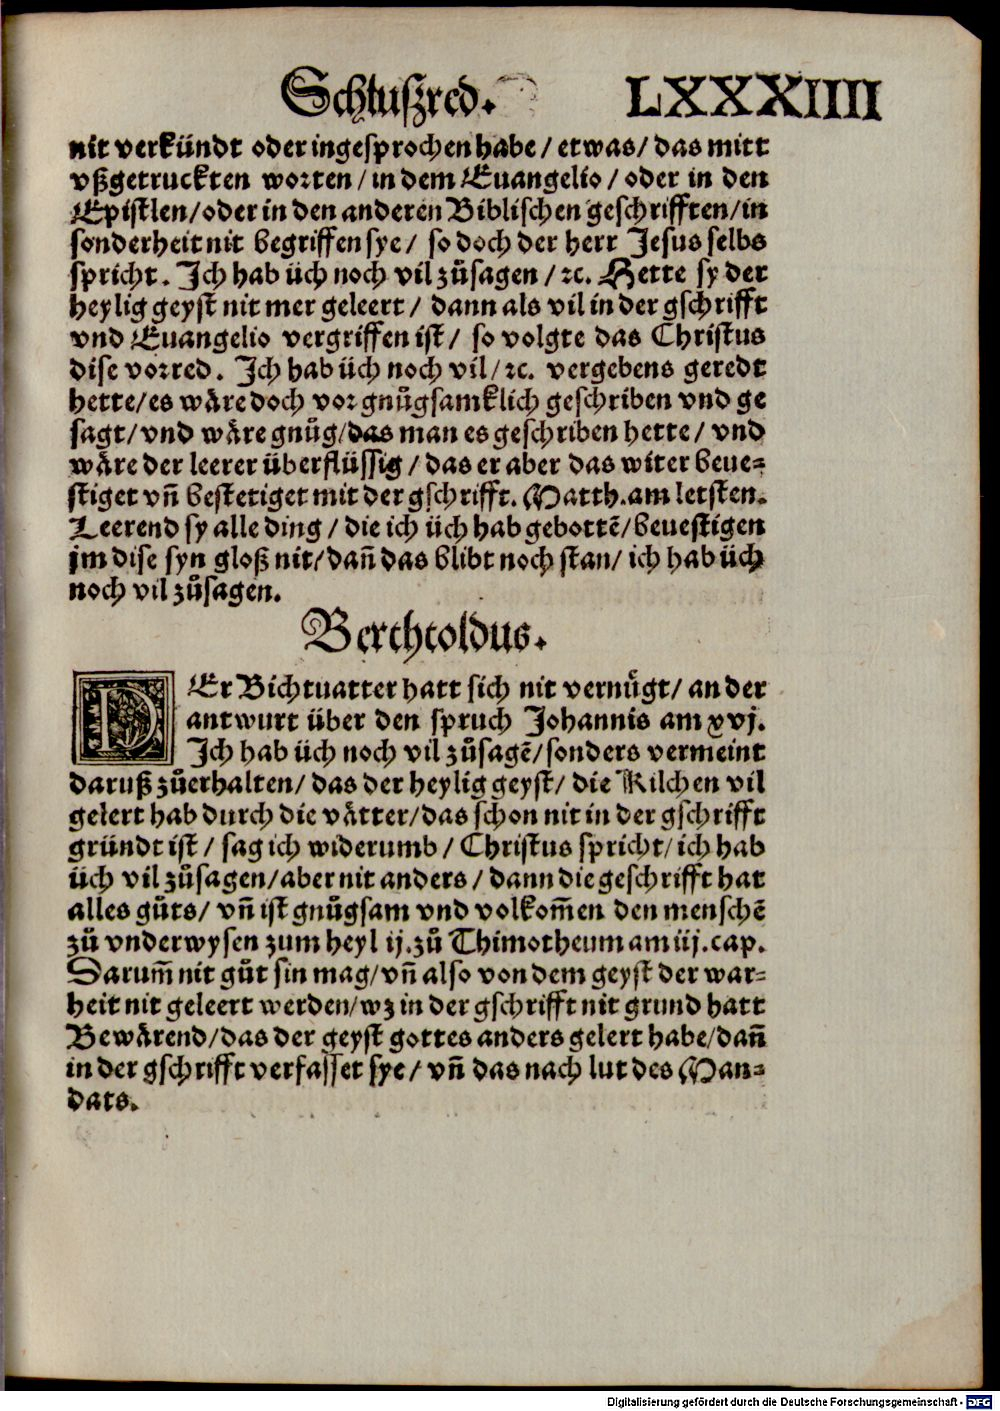 Schluszred. LXXXIIII
nit verkündt oder ingesprochen habe / etwas / das mitt
vßgetruckten worten / in dem Euangelio / oder in den
Epistlen / oder in den anderen Biblischen geschrifften / in
sonderheit nit begriffen sye / so doch der herr Jesus selbs
spricht. Ich hab üch noch vil zůsagen / ꝛc. Hette sy der
heylig geyst nit mer geleert / dann als vil in der gschrifft
vnd Euangelio vergriffen ist / so volgte das Christus
dise vorred. Ich hab üch noch vil / ꝛc. vergebens geredt
hette / es wäre doch vor gnůgsamklich geschriben vnd ge
sagt / vnd wäre gnůg / das man es geschriben hette / vnd
wäre der leerer überflüssig / das er aber das witer beue⸗
stiget vñ bestetiget mit der gschrifft. Matth. am letsten.
Leerend sy alle ding / die ich üch hab gebottẽ / beuestigen
jm dise syn gloß nit / dañ das blibt noch stan / ich hab üch
noch vil zůsagen.
Berchtoldus.
DEr Bichtuatter hatt sich nit vernůgt / an der
antwurt über den spruch Johannis am xvj.
Ich hab üch noch vil zůsagẽ / sonders vermeint
daruß zůerhalten / das der heylig geyst / die Kilchen vil
gelert hab durch die vätter / das schon nit in der gschrifft
gründt ist / sag ich widerumb / Christus spricht / ich hab
üch vil zůsagen / aber nit anders / dann die geschrifft hat
alles gůts / vñ ist gnůgsam vnd volkom̃en den menschẽ
zů vnderwysen zum heyl ij. zů Thimotheum am iij. cap.
Darum̃ nit gůt sin mag / vñ also von dem geyst der war⸗
heit nit geleert werden / wz in der gschrifft nit grund hatt
Bewärend / das der geyst gottes anders gelert habe / dañ
in der gschrifft verfasset sye / vñ das nach lut des Man⸗
dats.
Digitalisierung gefördert durch die Deutsche Forschungsgemeinschaft - DFG